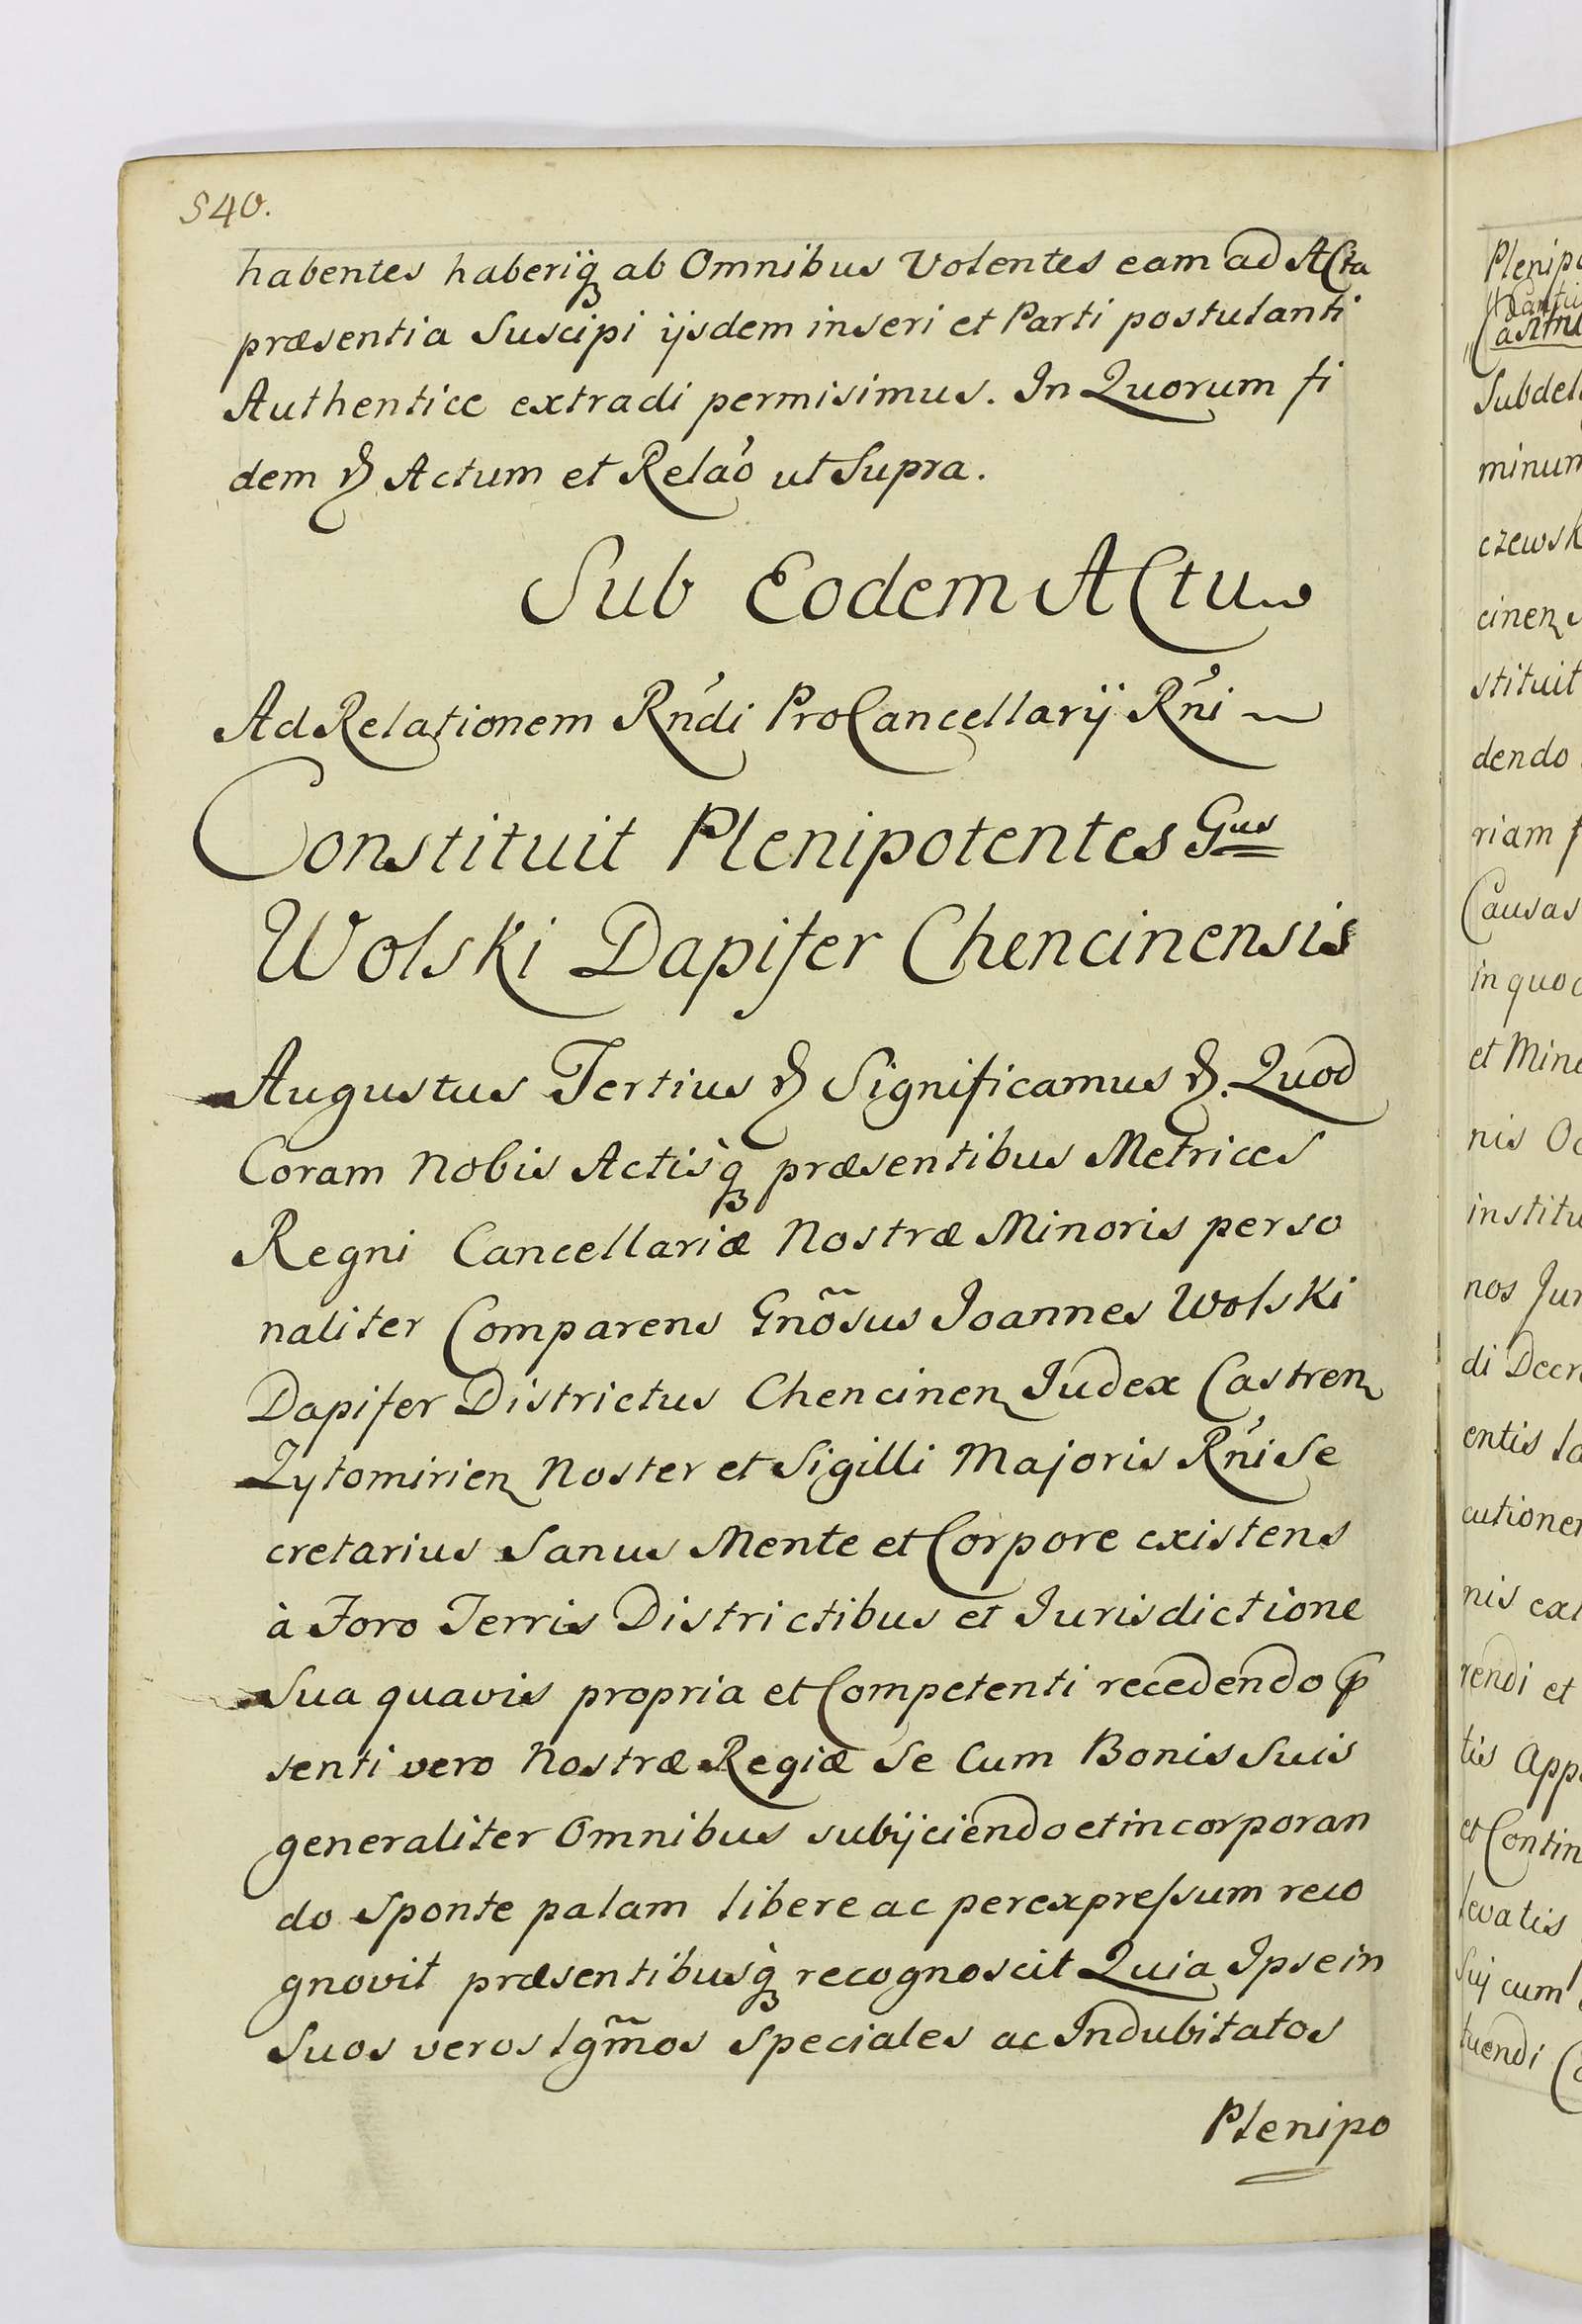 540.
habentes haberiq̃ ab Omnibus Volentes eam ad ACta
præsentia Suscipi ijsdem inseri et Parti postulanti
Authentice extradi permisimus. In Quorum fi
dem &. Actum et Relao͂ ut Supra.
Sub Eodem ACtu
Ad Relationem Rńdi ProCancellarij Rńi
Constituit Plenipotentes Gus
Wolski Dapifer Chencinensis
Augustus Tertius & Significamus &. Quod
Coram Nobis Actisq̃ præsentibus Metrices
Regni Cancellariæ Nostræ Minoris perso
naliter Comparens Gnõsus Joannes Wolski
Dapifer Districtus Chencinen Judex Castren
Zytomirien Noster et Sigilli Majoris Rńi Se
cretarius Sanus Mente et Corpore existens
à Foro Terris Districtibus et Jurisdictione
Sua quavis propria et Competenti recedendo p̃
senti vero Nostræ Regiæ Se Cum Bonis Suis
generaliter Omnibus subijciendo et incorporan
do sponte palam libere ac per expreſsum reco
gnovit præsentibusq̃ recognoscit Quia Ipse in
Suos veros lgm̃os Speciales ac Indubitatos
Plenipo
Plenipo
Subdel
minum
czewsk
cinen
stituit
dendo
riam f
Causas
in quoc
et Mino
nis Oc
institu
nos Jur
di Decr
entis la
cutione
nis exe
rendi et
tis App
et Contin
levatis
Suj cum
tuendi